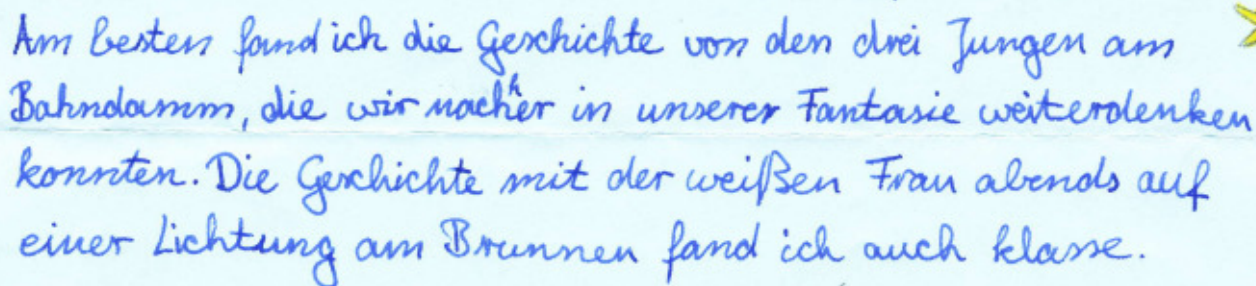 Am besten fand ich die Geschichte von den drei Jungen am
Bahndamm, die wir nachher in unserer Fantasie weiterdenken
konnten. Die Geschichte mit der weißen Frau abends auf
einer Lichtung am Brunnen fand ich auch klasse.